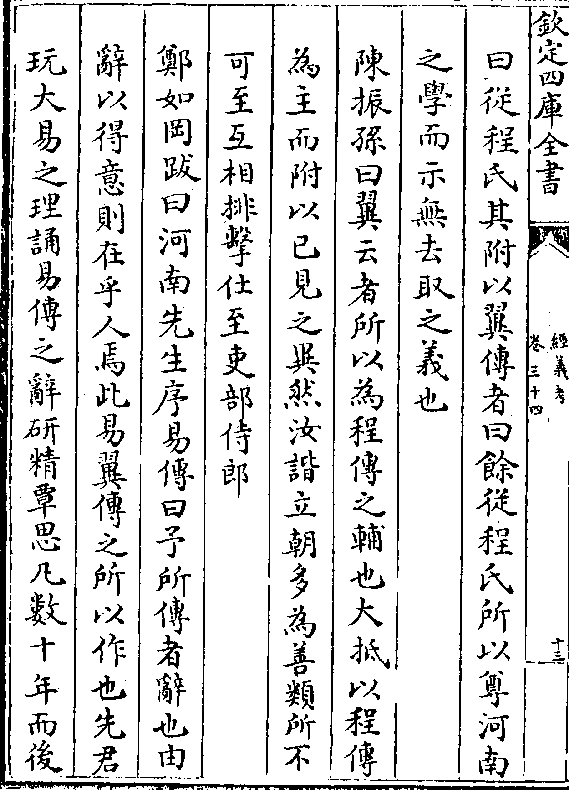 欽定四庫全書
經義考
卷三十四
十三
曰從程氏其附以翼傳者曰餘從程氏所以尊河南
之學而示無去取之義也
陳振孫曰翼云者所以為程傳之輔也大抵以程傳
為主而附以已見之異然汝諧立朝多為善類所不
可至互相排擊仕至吏部侍郎
鄭如岡跋曰河南先生序易傳曰予所傳者辭也由
辭以得意則在乎人焉此易翼傳之所以作也先君
玩大易之理誦易傳之辭研精覃思凡數十年而後